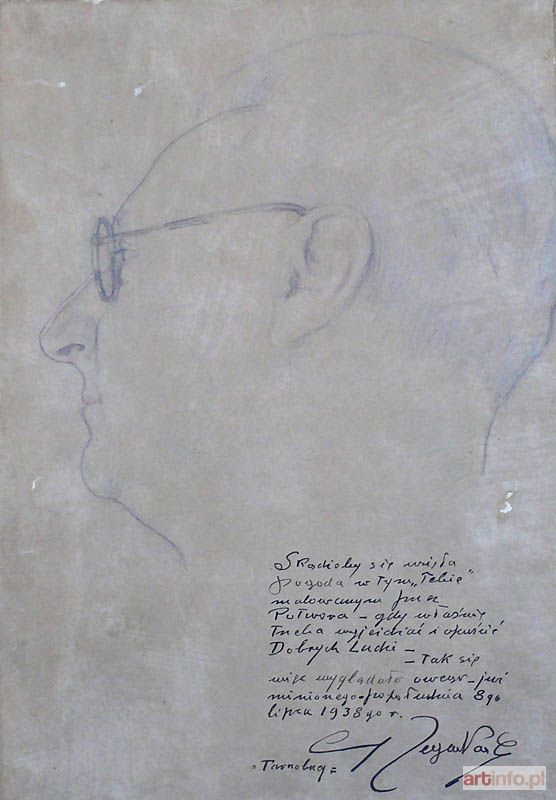 Skądżeby się wzięła
pogoda w tym „Łebie”
malowanym przez
Potwora – gdy właśnie
trzeba wyjeżdżać i opuścić
Dobrych Ludzi –
– Tak się
więc wyglądało owego – już
minionego – popołudnia 8go
lipca 1938go r.
Tarnobrzeg =
artinfo.pl